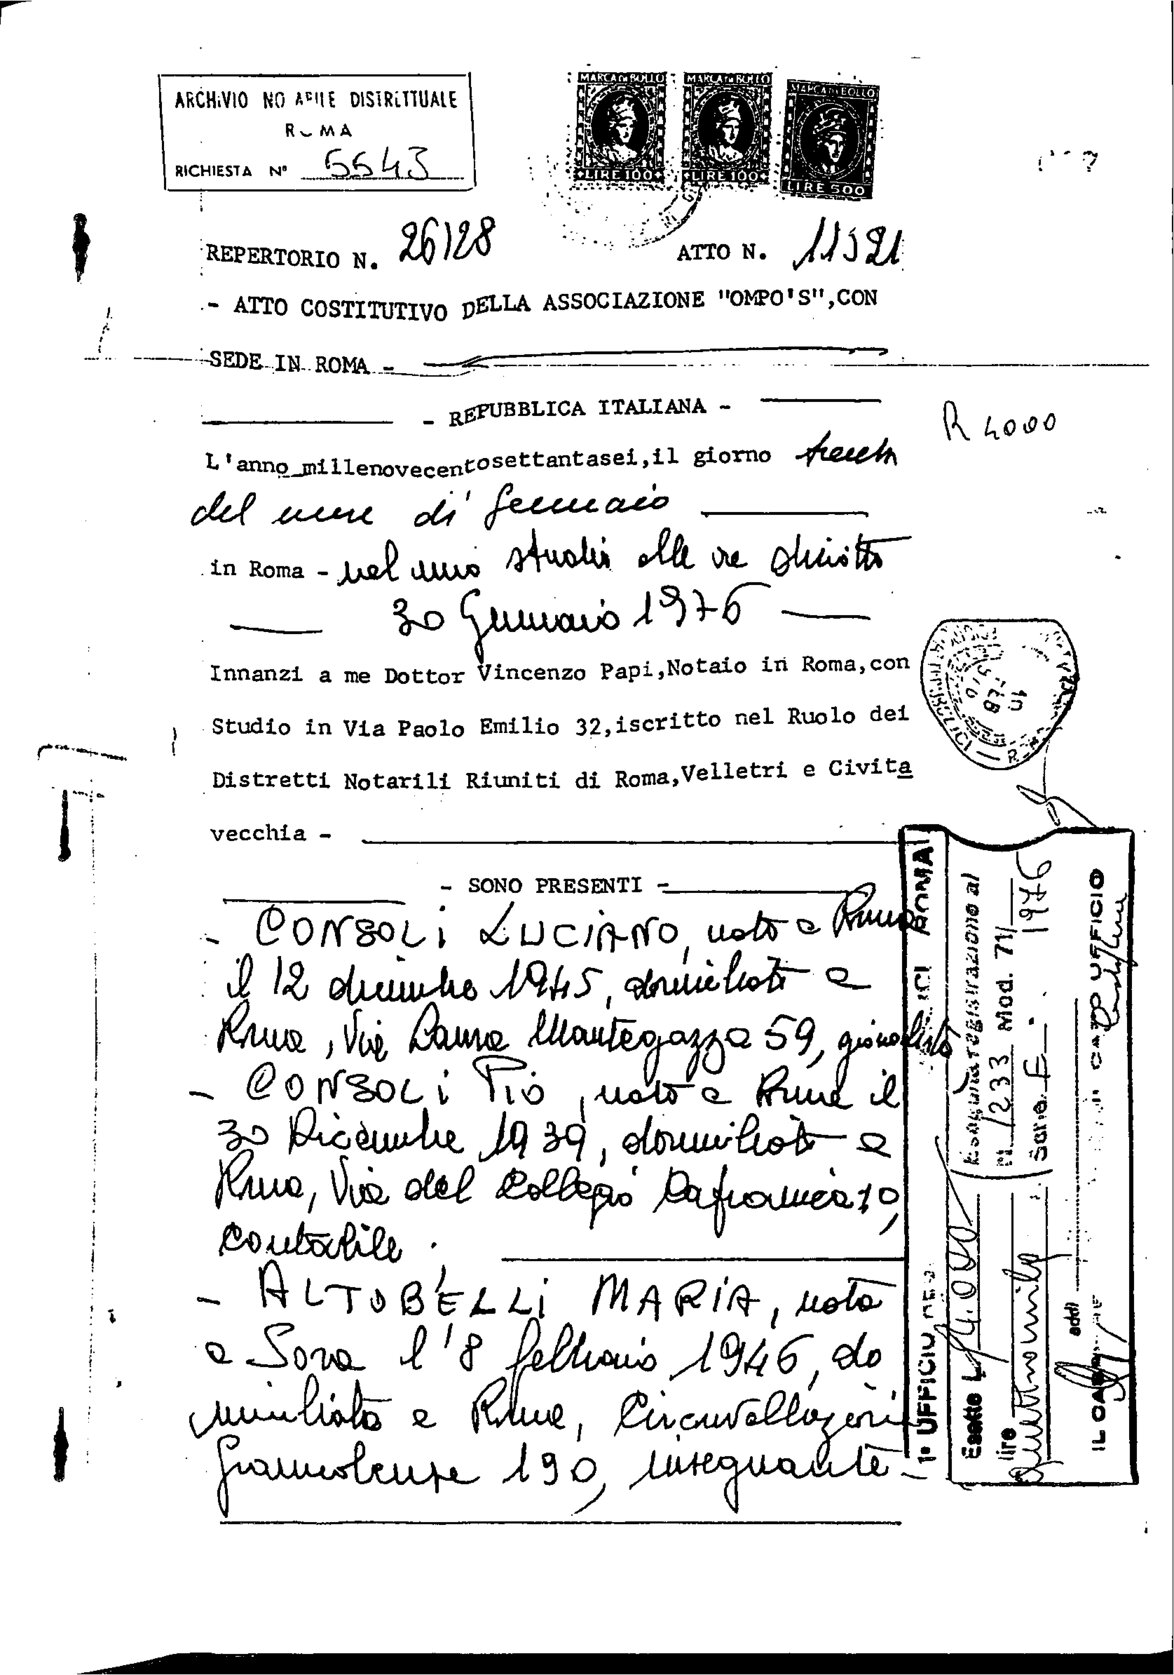 ARCHIVIO NO ARILE DISTRETTUALE
ROMA
RICHIESTA N° 5543
MARCA DA BOLLO
LIRE 100
MARCA DA BOLLO
LIRE 100
MARCA DA BOLLO
LIRE 500
REPERTORIO N. 26128
ATTO N. 11521
- ATTO COSTITUTIVO DELLA ASSOCIAZIONE "OMPO'S",CON
SEDE IN ROMA -
- REPUBBLICA ITALIANA -
R 4000
L'anno millenovecentosettantasei,il giorno trenta
del mese di Gennaio
in Roma - nel mio studio alle ore diciotto
30 Gennaio 1976
Innanzi a me Dottor Vincenzo Papi,Notaio in Roma,con
Studio in Via Paolo Emilio 32,iscritto nel Ruolo dei
Distretti Notarili Riuniti di Roma,Velletri e Civita
vecchia -
- SONO PRESENTI -
- CONSOLI LUCIANO, nato a Roma
il 12 dicembre 1945, domiciliato a
Roma, Via Laura Mantegazza 59, giornalista
- CONSOLI PIO, nato a Roma il
30 Dicembre 1939, domiciliato a
Roma, Via del Collegio Capranica 10,
contabile.
- ALTOBELLI MARIA, nata
a Sora l'8 febbraio 1946, do
miciliata a Roma, Circonvallazione
Gianicolense 190, insegnante -
10 FEB 1976
1° UFFICIO ROMA
Eseguita registrazione al
N. 1233 Mod. 71/
Serie E 1976
Esatte L. 4.000
lire quattromila
addì
IL CAPO UFFICIO